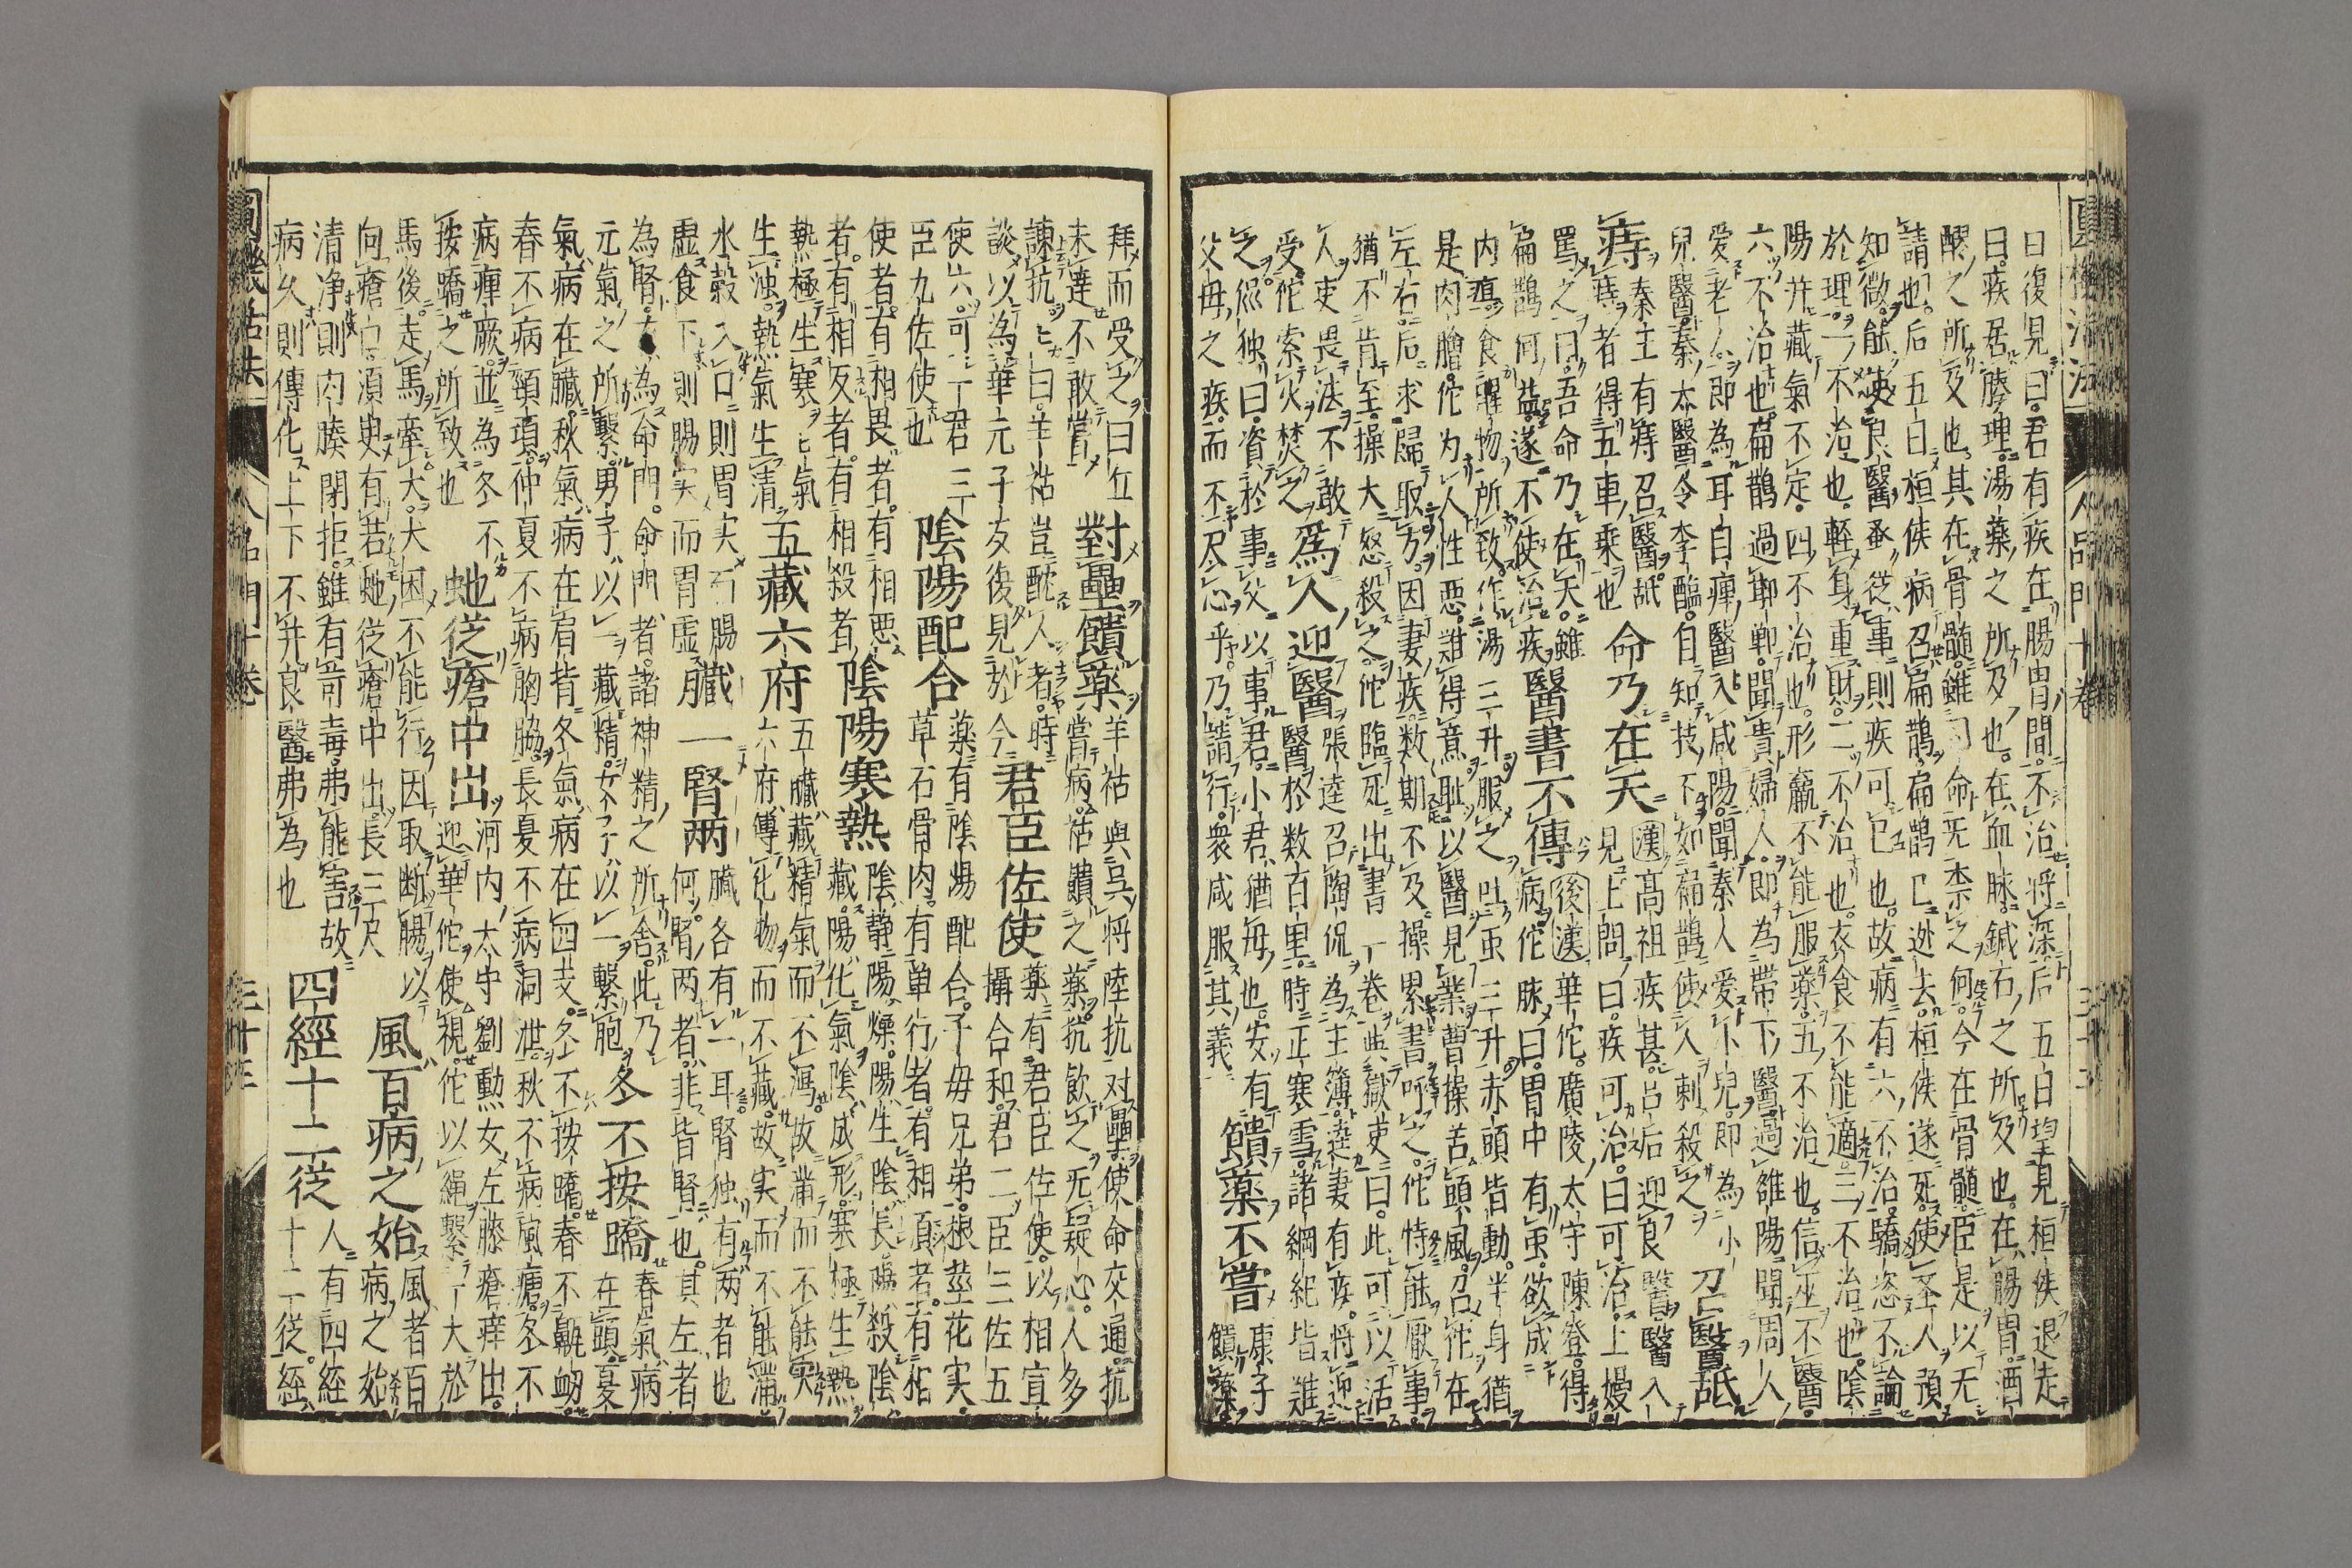 曰復見曰君有疾在腸胃間不治将深后五日望見桓侯退走
曰疾居腠理湯藥之所及也在血脉鍼石之所及也在腸胃酒
醪之所及也其在骨髓雖司命无柰之何今在骨髓臣是以无
請也后五日桓侯病召扁鵲扁鵲已逃去桓侯遂死使圣人預
知微能使良醫蚤從事則疾可已也故病有六不治驕恣不論
於理一不治也輕身重財二不治也衣食不能適三不治也陰
陽并藏氣不定四不治也形羸不能服藥五不治也信巫不醫
六不治也扁鵲過邯鄲聞貴婦人即為帶下醫過雒陽聞周人
爱老人即為耳目痺醫入咸陽聞秦人爱小兒即為小
兒醫秦太醫令李醯自知技不如扁鵲使人刺殺之
召醫舐
痔
秦主有痔召醫舐
痔者得五車乘也
命乃在天
漢高祖疾甚吕后迎良醫醫入
見上問曰疾可治曰可治上嫚
罵之曰吾命乃在天雖
扁鵲何益遂不使治疾
醫書不傳
後漢華佗廣陵太守陳登得
病佗脉曰胃中有虫欲成
内疽食腥物所致作湯二升服之吐虫三升赤頭皆動半身猶
是肉膾佗为人性惡難得意耻以醫見業曹操苦頭風召佗在
左右后求歸取方因妻疾数期不及操累書呼之佗恃能厭事
猶不肯至操大怒殺之佗臨死出書一卷與獄吏曰此可以活
人吏畏法不敢
受佗索火焚之
爲人迎醫
張逵召陶侃為主簿逵妻有疾将迎
醫於数百里時正寒雪諸綱紀皆難
之侃独曰資於事父以事君小君猶母也安有
父母之疾而不尽心乎乃請行衆咸服其義
饋藥不嘗
康子
饋藥
拜而受之曰丘
未達不敢嘗
對壘饋藥
羊祜與吴将陸抗对壘使命交通抗
嘗病祜饋之藥抗飲之无疑心人多
諫抗抗曰羊祜豈酖人者時
談以為華元子友復見於今
君臣佐使
藥有君臣佐使以相宣
攝合和君二臣三佐五
使六可一君三
臣九佐使也
陰陽配合
藥有陰陽配合子母兄弟根莖花実
草石骨肉有单行者有相須者有相
使者有相畏者有相惡
者有相反者有相殺者
陰陽寒熱
陰静陽燥陽生陰長陽殺陰
藏陽化氣陰成形寒極生熱
熱極生寒寒氣
生濁熱氣生清
五藏六府
五臟藏精氣而不瀉故満而不能実
六府傳化物而不藏故実而不能満
水穀入口則胃実而腸
虚食下則腸実而胃虚
臟一腎两
臟各有一耳腎独有两者也
何腎两者非皆腎也其左者
為腎右為命門命門者諸神精之所舍此乃
元氣之所繋男子以藏精女子以繋胞
冬不按蹻
春氣病
在頭夏
氣病在臟秋氣病在肩背冬氣病在四支冬不按蹻春不鼽衄
春不病頸項仲夏不病胸脇長夏不病洞泄秋不病風瘧冬不
病痺厥並為冬不
按蹻之所致也
虵從瘡中出
河内太守劉勳女左膝瘡痒出
迎華佗使視佗以繩繋一大於
馬後走馬牽犬犬困不能行因取断腸以
向瘡口須臾有若虵從瘡中出長三尺
風百病之始
風者百
病之始
清浄則肉腠閉拒雖有苛毒弗能害故
病久則傳化上下不并良醫弗為也
四經十二從
人有四經
十二從經